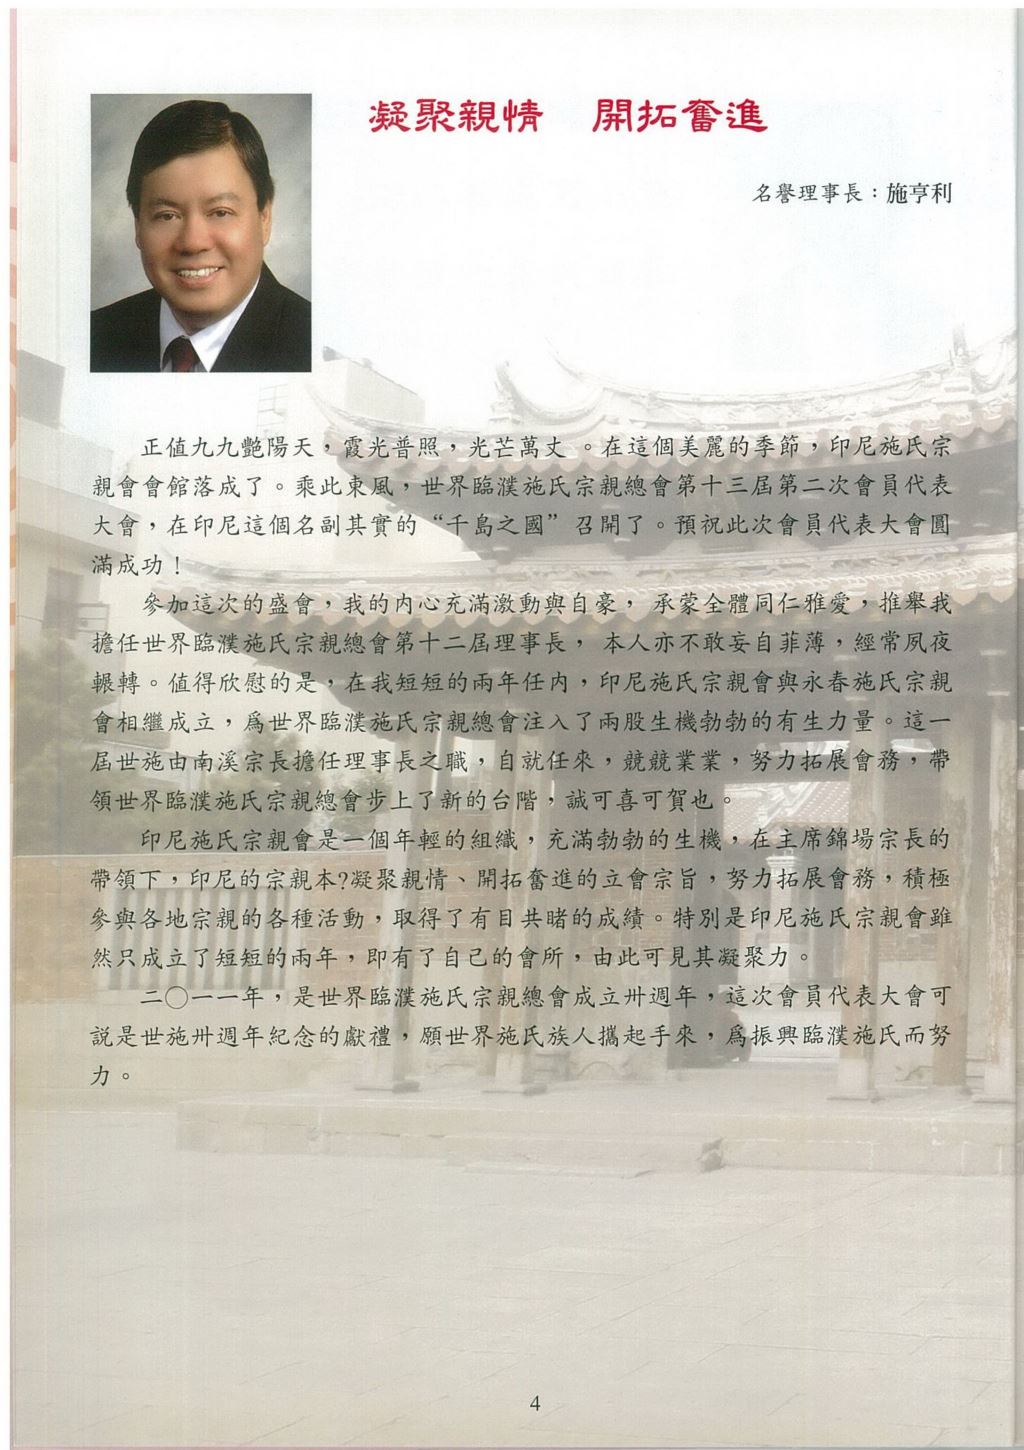 凝聚親情　開拓奮進
名譽理事長：施亨利
正值九九艷陽天，霞光普照，光芒萬丈 。在這個美麗的季節，印尼施氏宗
親會會館落成了。乘此東風，世界臨濮施氏宗親總會第十三屆第二次會員代表
大會，在印尼這個名副其實的“千島之國”召開了。預祝此次會員代表大會圓
滿成功！
參加這次的盛會，我的内心充滿激動與自豪， 承蒙全體同仁雅愛，推舉我
擔任世界臨濮施氏宗親總會第十二屆理事長， 本人亦不敢妄自菲薄，經常夙夜
輾轉。值得欣慰的是，在我短短的兩年任内，印尼施氏宗親會與永春施氏宗親
會相繼成立，爲世界臨濮施氏宗親總會注入了兩股生機勃勃的有生力量。這一
屆世施由南溪宗長擔任理事長之職，自就任來，競競業業，努力拓展會務，帶
領世界臨濮施氏宗親總會步上了新的台階，誠可喜可賀也。
印尼施氏宗親會是一個年輕的組織，充滿勃勃的生機，在主席錦場宗長的
帶領下，印尼的宗親本?凝聚親情、開拓奮進的立會宗旨，努力拓展會務，積極
參與各地宗親的各種活動，取得了有目共睹的成績。特別是印尼施氏宗親會雖
然只成立了短短的兩年，即有了自己的會所，由此可見其凝聚力。
二〇一一年，是世界臨濮施氏宗親總會成立卅週年，這次會員代表大會可
説是世施卅週年紀念的獻禮，願世界施氏族人攜起手來，爲振興臨濮施氏而努
力。
4